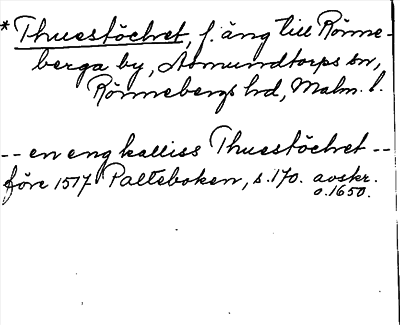 * Thuestöchet, f. äng till Rönne-
berga by, Asmundtorps sn,
Rönnebergs hd, Malm. l.
-- en eng kalliss Thuestöchet --
före 1517 Palteboken, s. 170. avskr.
o. 1650.